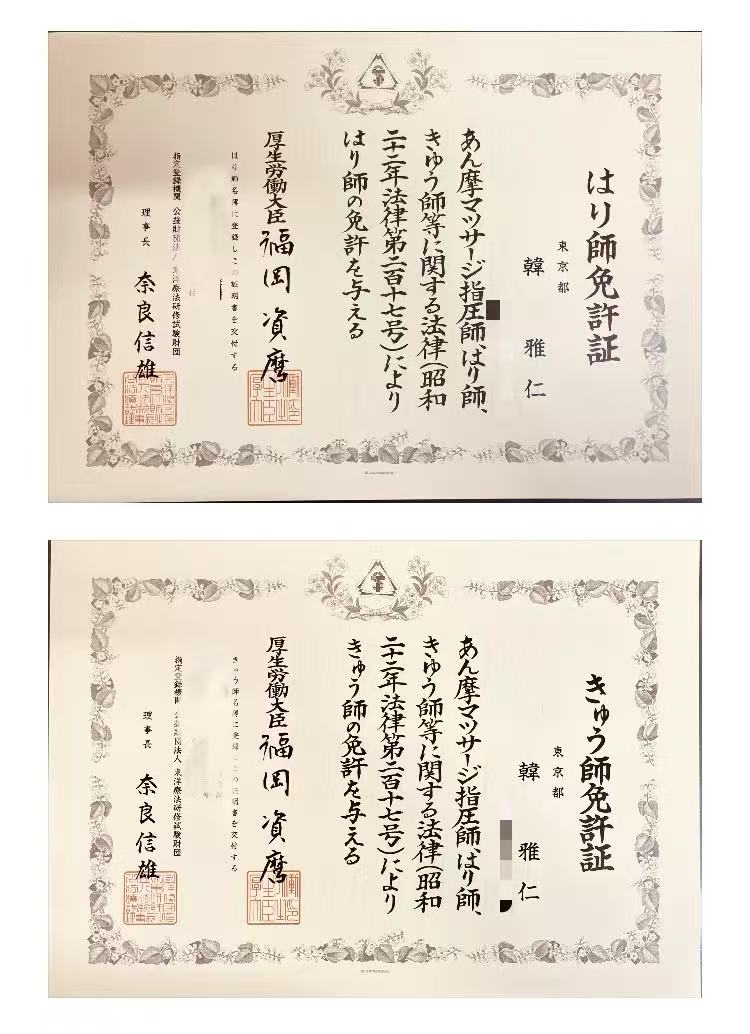 はり師免許証
東京都
韓雅仁
あん摩マツサージ指圧師、はり師、
きゅう師等に関する法律(昭和
二十二年法律第二百十七号)により
はり師の免許を与える
厚生労働大臣 福岡資麿
はり師名簿に登録しこの証明書を交付する
付
指定登録機関 公益財団法人 東洋療法研修試験財団
理事長 奈良信雄
きゅう師免許証
東京都
韓雅仁
あん摩マツサージ指圧師、はり師、
きゅう師等に関する法律(昭和
二十二年法律第二百十七号)により
きゅう師の免許を与える
厚生労働大臣 福岡資麿
きゅう師名簿に登録しこの証明書を交付する
号
指定登録機関 公益財団法人 東洋療法研修試験財団
理事長 奈良信雄